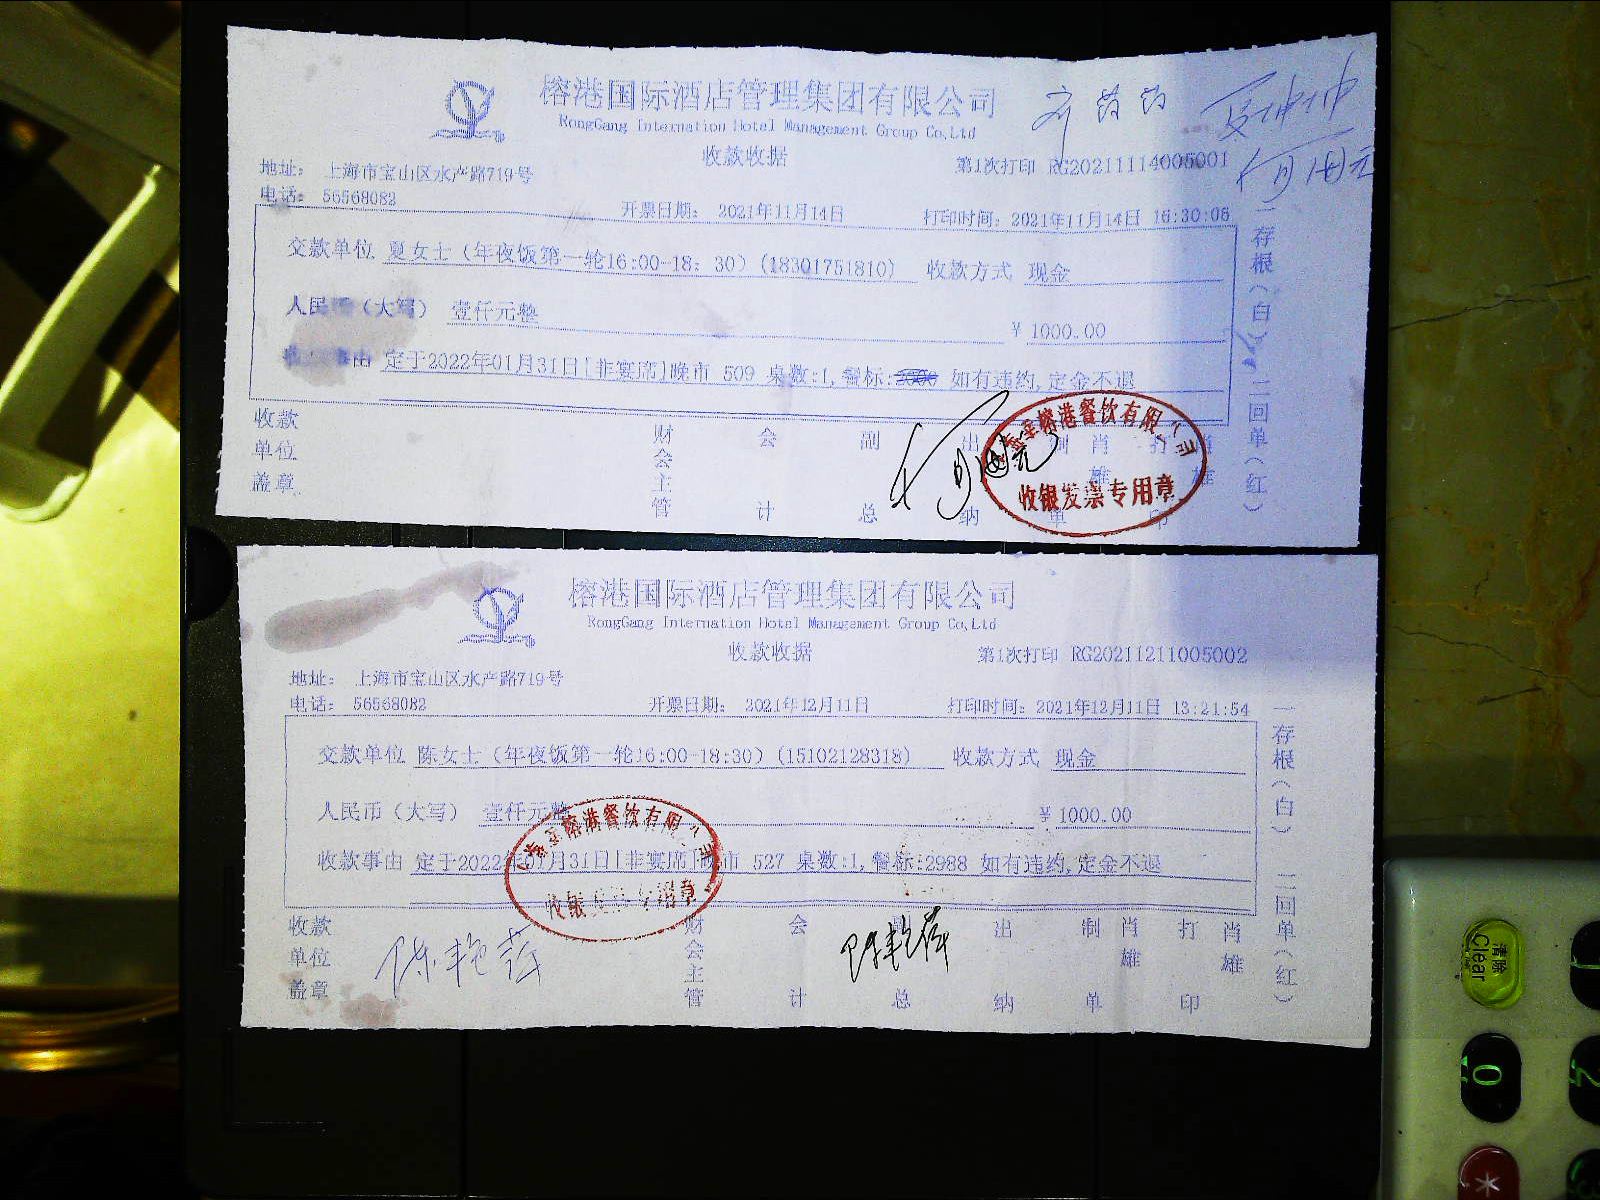 榕港国际酒店管理集团有限公司
RongGang Internation Hotel Management Group Co,Ltd
收款收据
第1次打印 RG20211114005001
地址： 上海市宝山区水产路719号
电话： 56568082
开票日期： 2021年11月14日 打印时间：2021年11月14日 16:30:06
交款单位 夏女士（年夜饭第一轮16:00-18：30）(18301751810) 收款方式 现金
人民币（大写） 壹仟元整 ￥1000.00
事由 定于2022年01月31日[非宴席]晚市 509 桌数:1,餐标: 如有违约,定金不退
收款单位盖章 财会主管 会计 副总 出纳 制单 肖雄 打印 肖雄
榕港餐饮有限
收银发票专用章
一存根（白） 二回单（红）
榕港国际酒店管理集团有限公司
RongGang Internation Hotel Management Group Co,Ltd
收款收据
第1次打印 RG20211211005002
地址： 上海市宝山区水产路719号
电话： 56568082
开票日期： 2021年12月11日 打印时间：2021年12月11日 13:21:54
交款单位 陈女士（年夜饭第一轮16:00-18:30）(15102128318) 收款方式 现金
人民币（大写） 壹仟元整 ￥1000.00
收款事由 定于2022年01月31日[非宴席]晚市 527 桌数:1,餐标:2988 如有违约,定金不退
榕港餐饮有限
收银 专用章
收款单位盖章 财会主管 会计 副总 出纳 制单 肖雄 打印 肖雄
一存根（白） 二回单（红）
清除
Clear
0
*